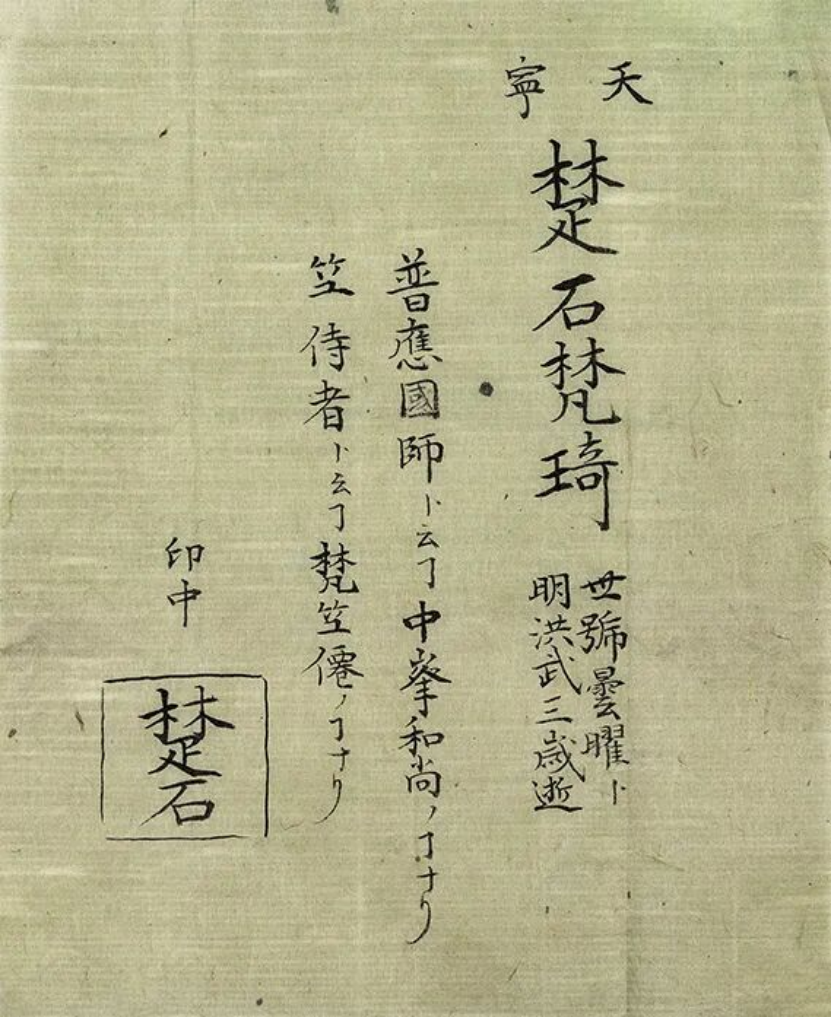 天寧
楚石梵琦
世號曇曜ト
明洪武三歳逝
普應國師ト云ヿ中峯和尚ノヿナリ
竺侍者ト云ヿ梵竺僊ノヿナリ
印中
楚石